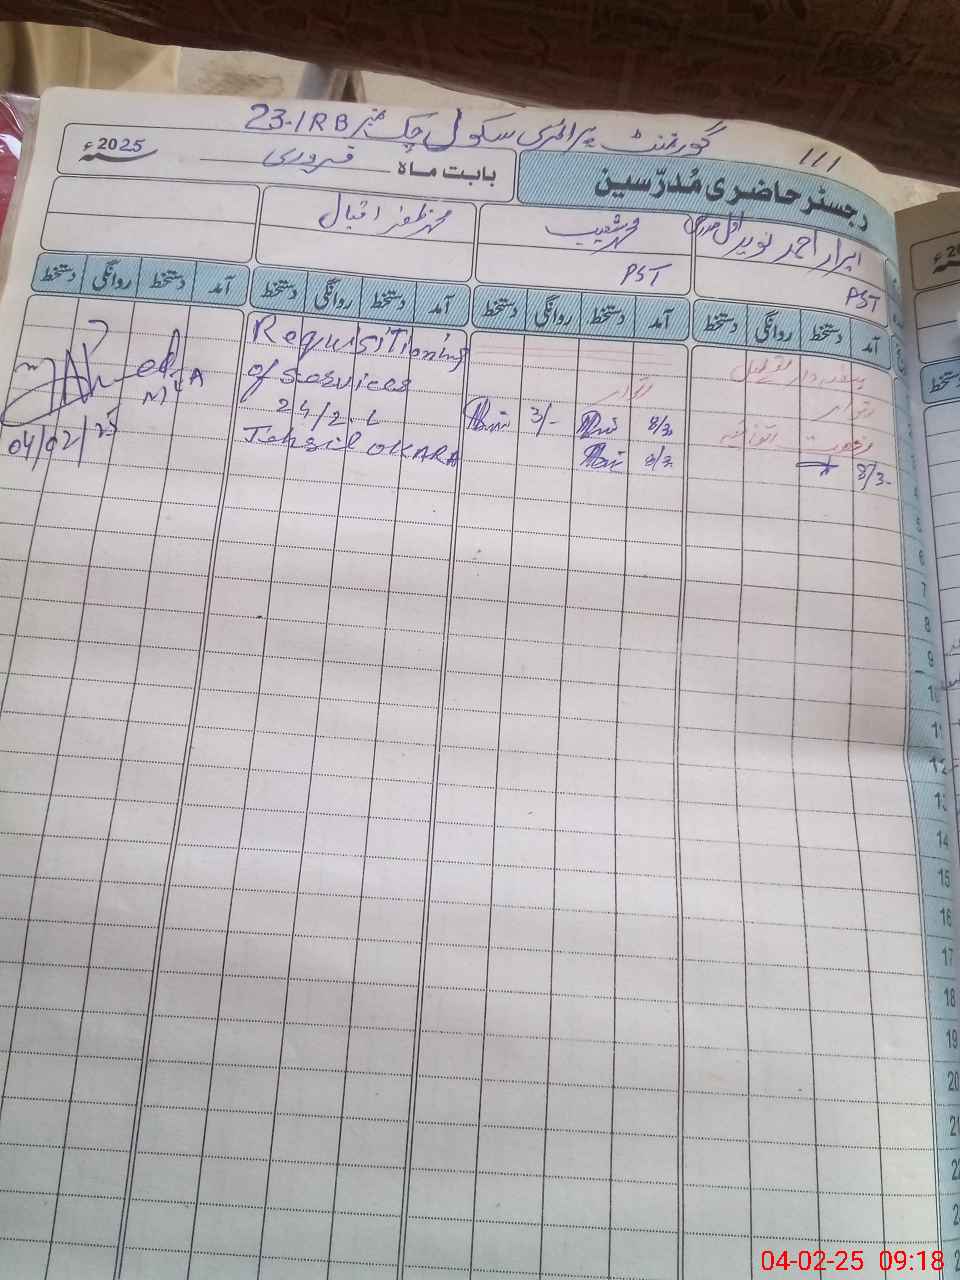 گورنمنٹ پرائمری سکول چک نمبر 23-1RB
111
رجسٹر حاضری مُدرّسین
بابت ماہ فروری
سنہ 2025ء
ابرار احمد نوید
PST
محمد شعیب
PST
محمد ظفر اقبال
آمد دستخط روانگی دستخط
آمد دستخط روانگی دستخط
آمد دستخط روانگی دستخط
آمد دستخط روانگی دستخط
اتوار
رخصت اتفاقیہ
8/3-
اتوار
8/3- 3/-
8/3-
Requisitioning
of services
24/2.L
Tehsil OKARA
04/02/25
5
6
7
8
9
10
11
12
13
14
15
16
17
18
19
20
21
22
دستخط
04-02-25 09:18